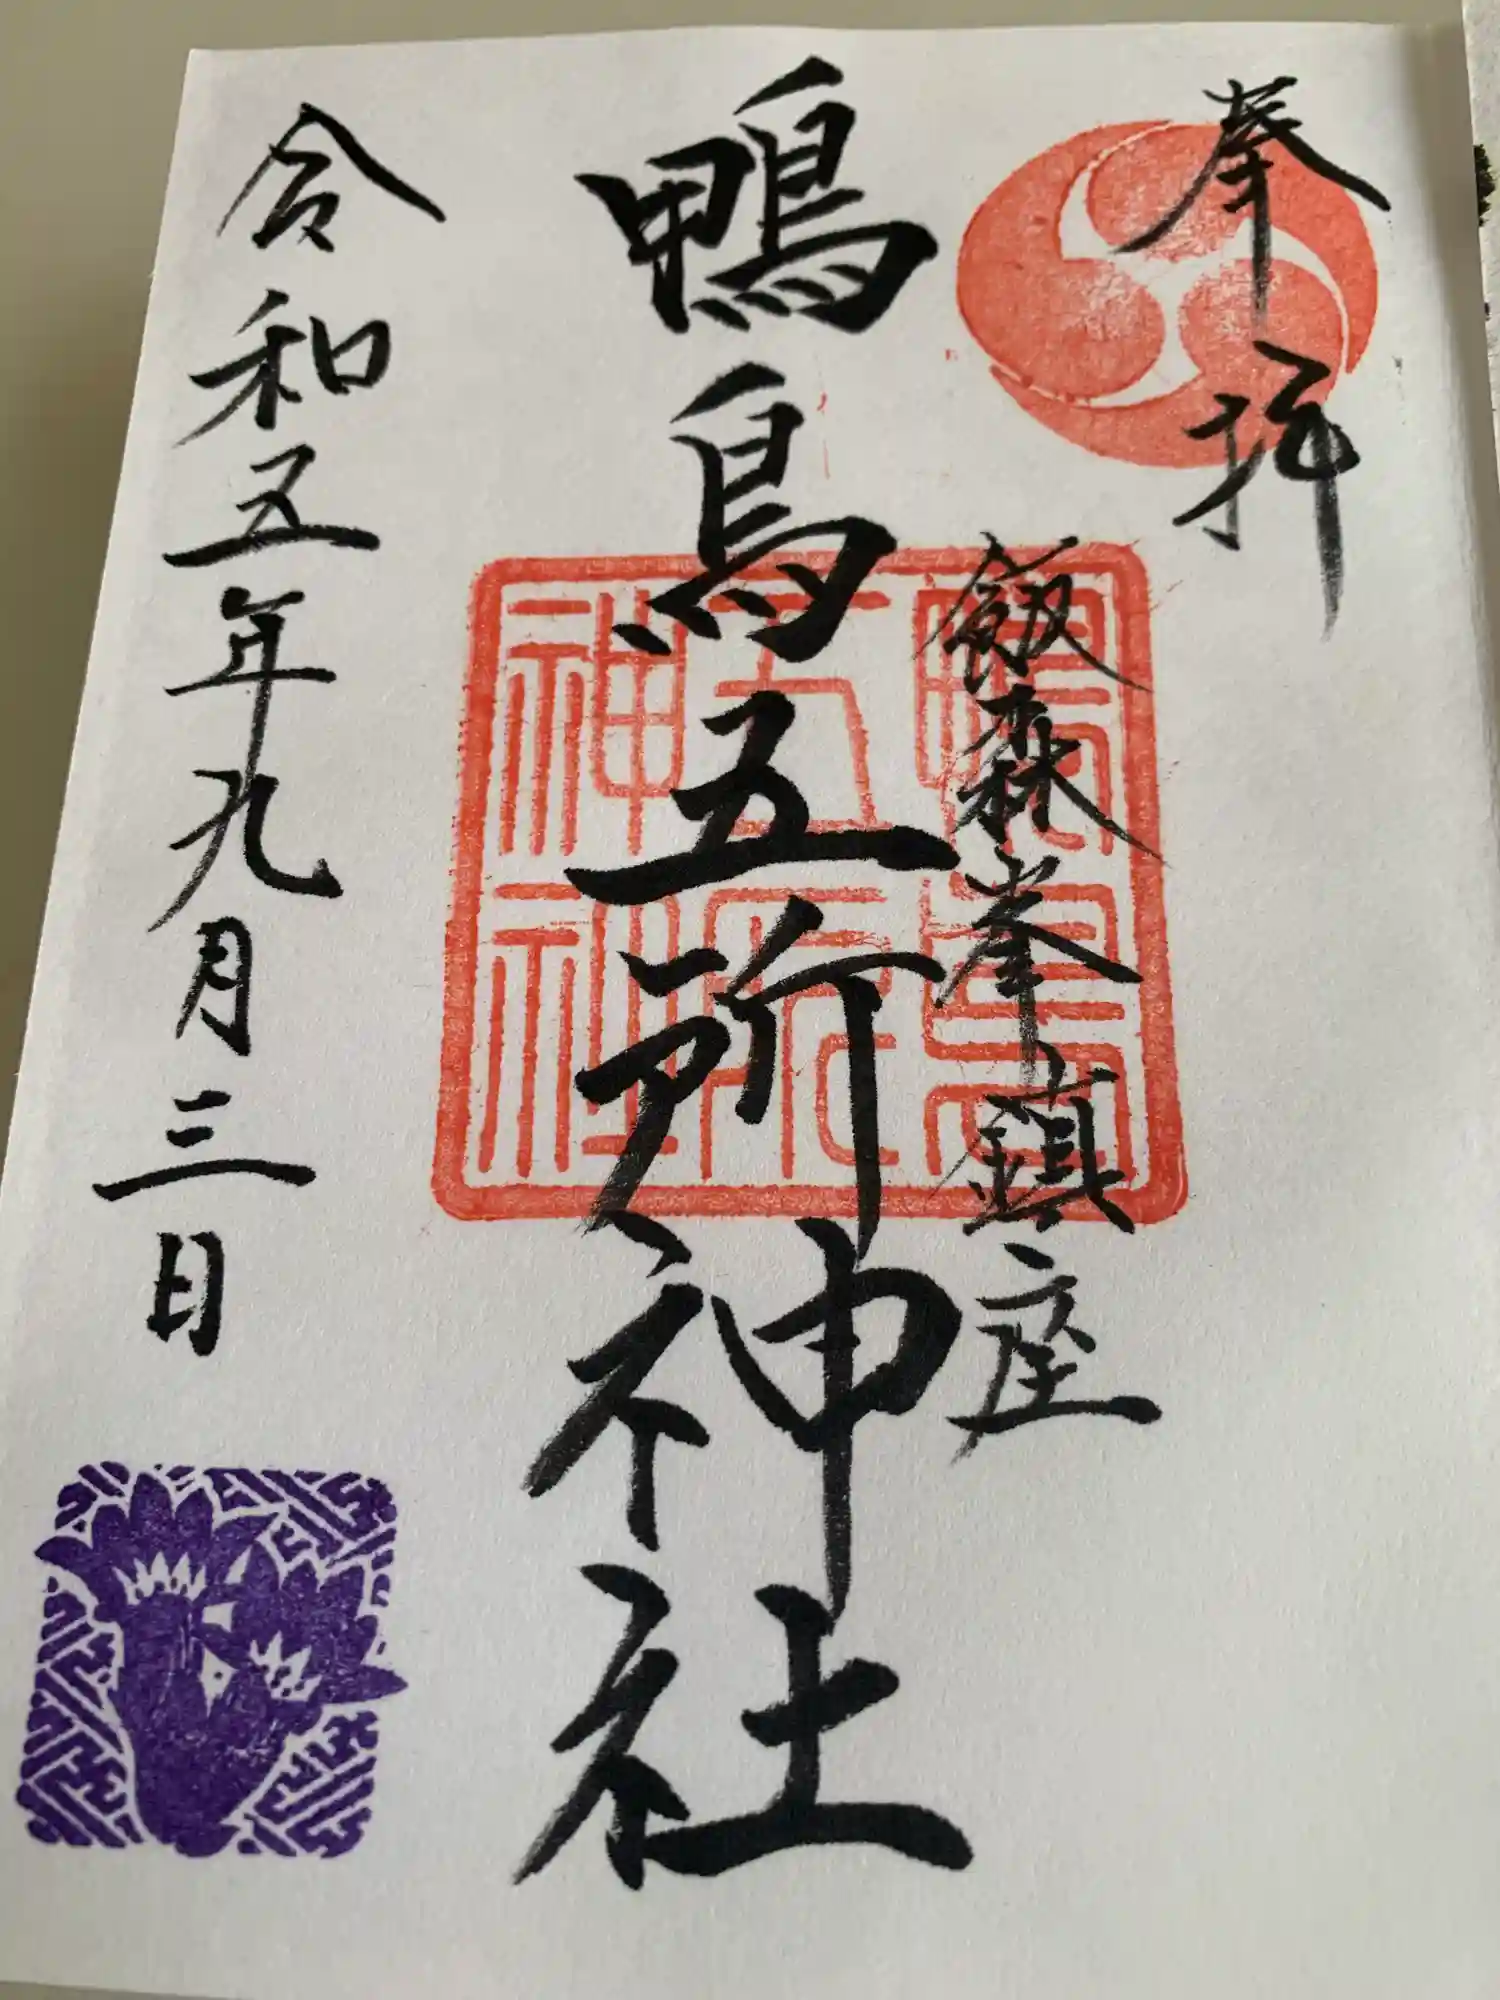 奉拝
飯森峯鎮座
鴨鳥五所神社
令和五年九月三日
鴨鳥五所神社